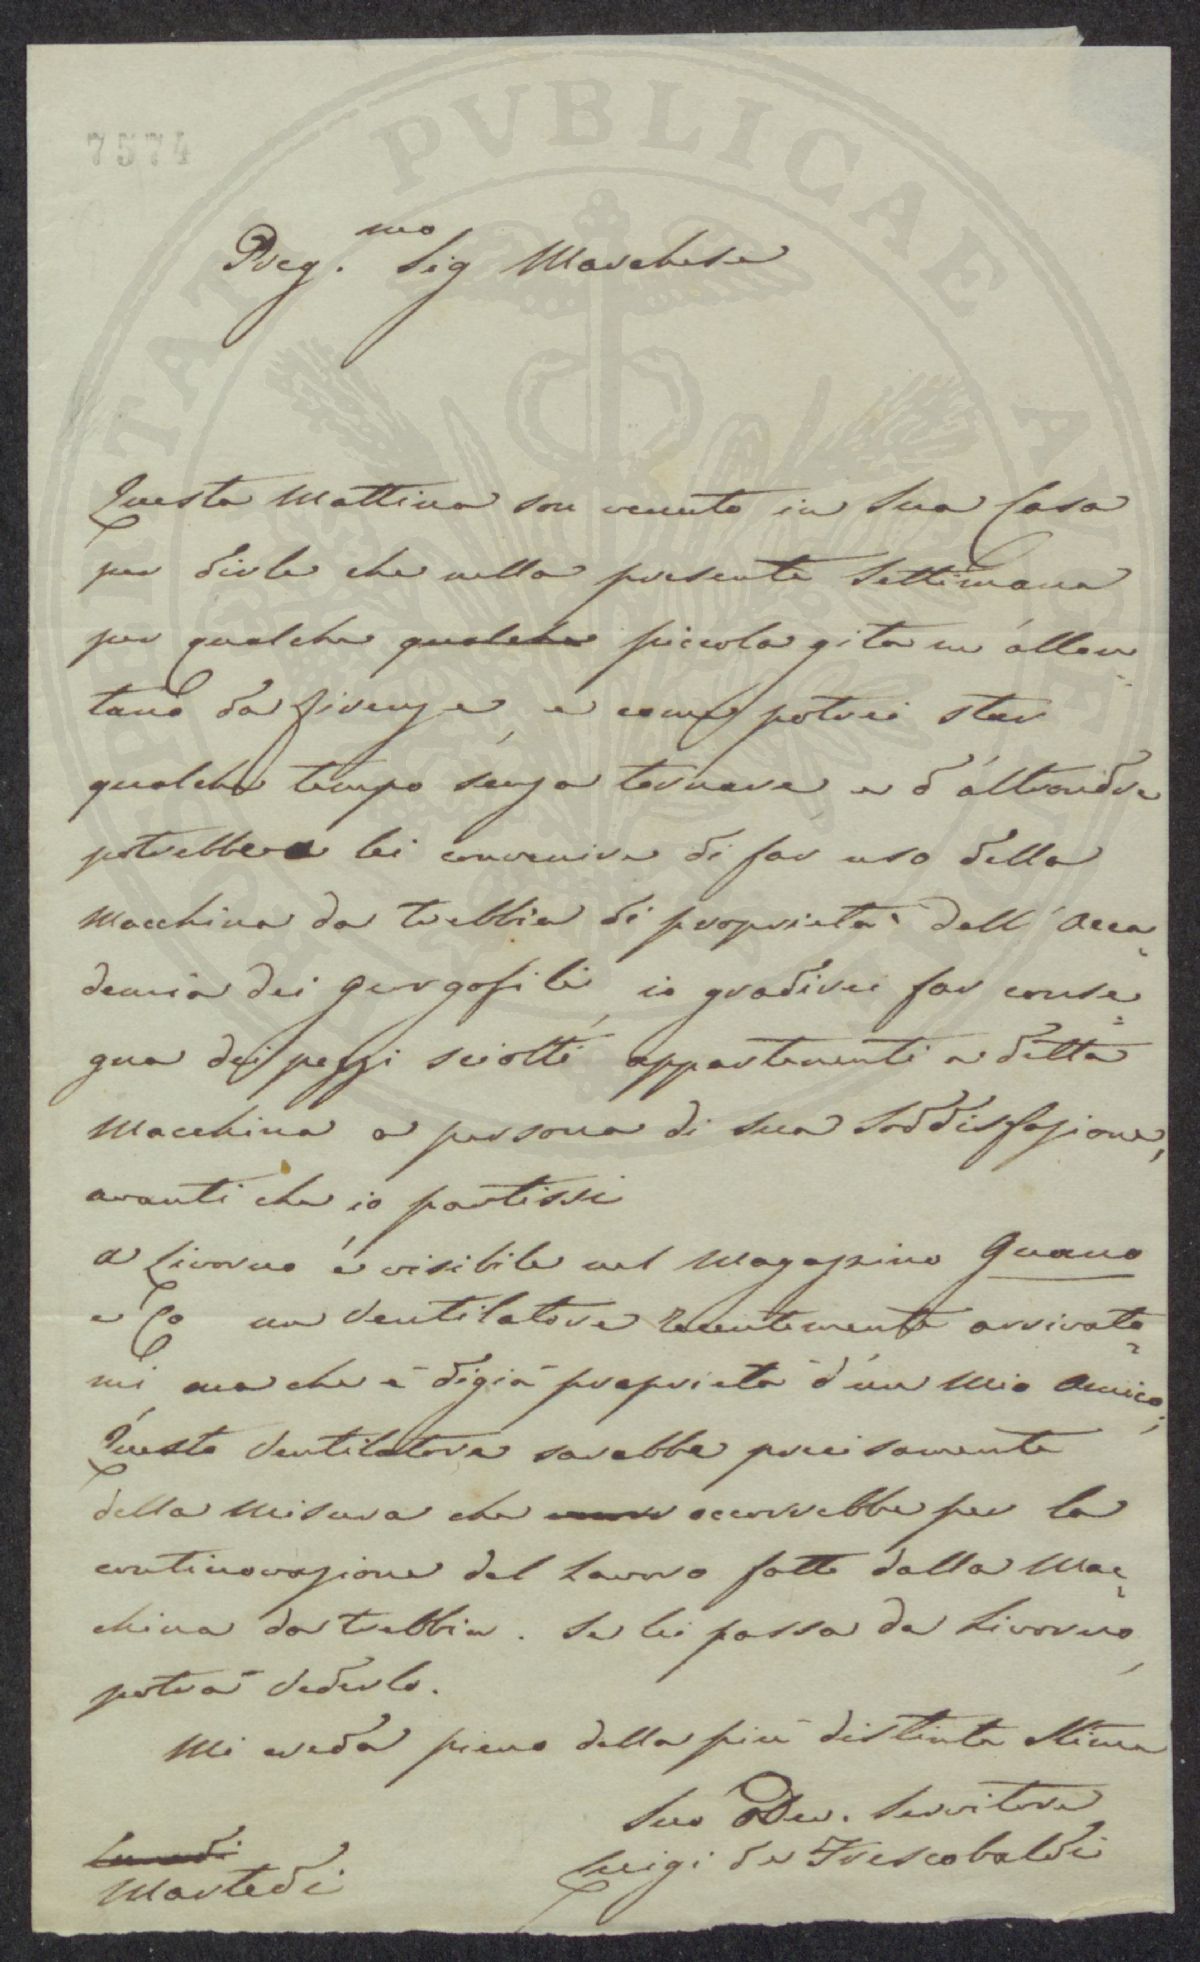 7574
Preg.mo Sig Marchese
Questa Mattina son venuto in Sua Casa
per dirle che nella presente Settimana
per qualche qualche piccola gita m'allon-
tano da firenze, e come potrei star
qualche tempo senza tornare, e d'altrondre
potrebbe a lei convenire di far uso della
Macchina da trebbia di proprietà dell'Acca-
demia dei Georgofili, io gradirei far conse-
gna dei pezzi sciolti appartenenti a detta
Macchina a persona di sua Soddisfazione,
avanti che io partissi
a Livorno è visibile nel Magazzino Guano
e Co un Ventilatore recentemente arrivato-
mi ma che è digià proprietà d'un Mio Amico;
Questo Ventilatore sarebbe precisamente
della Misura che occorrebbe per la
continovazione del Lavoro fatto dalla Mac-
china da trebbia. Se lei passa da Livorno,
potrà Vederlo.
Mi creda pieno della più distinta Stima
Suo Dev. Servitore
Luigi de Frescobaldi
Lunedi
Martedi
PVBLICAE